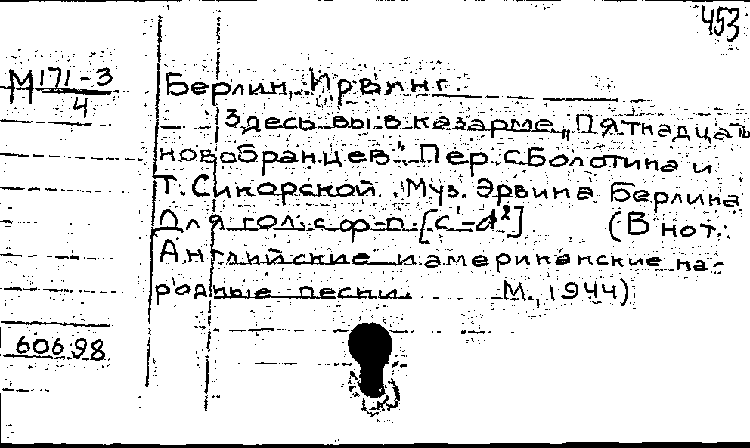 453
М 171-3
4
Берлин, Ирвинг.
Здесь вы в казарме „Пятнадцать
новобранцев". Пер. С. Болотина и
Т. Сикорской. Муз. Эрвина Берлина
Для гол. с ф-п. [c¹-d²] (В нот.:
Английские и американские на-
родные песни. М., 1944)
60698